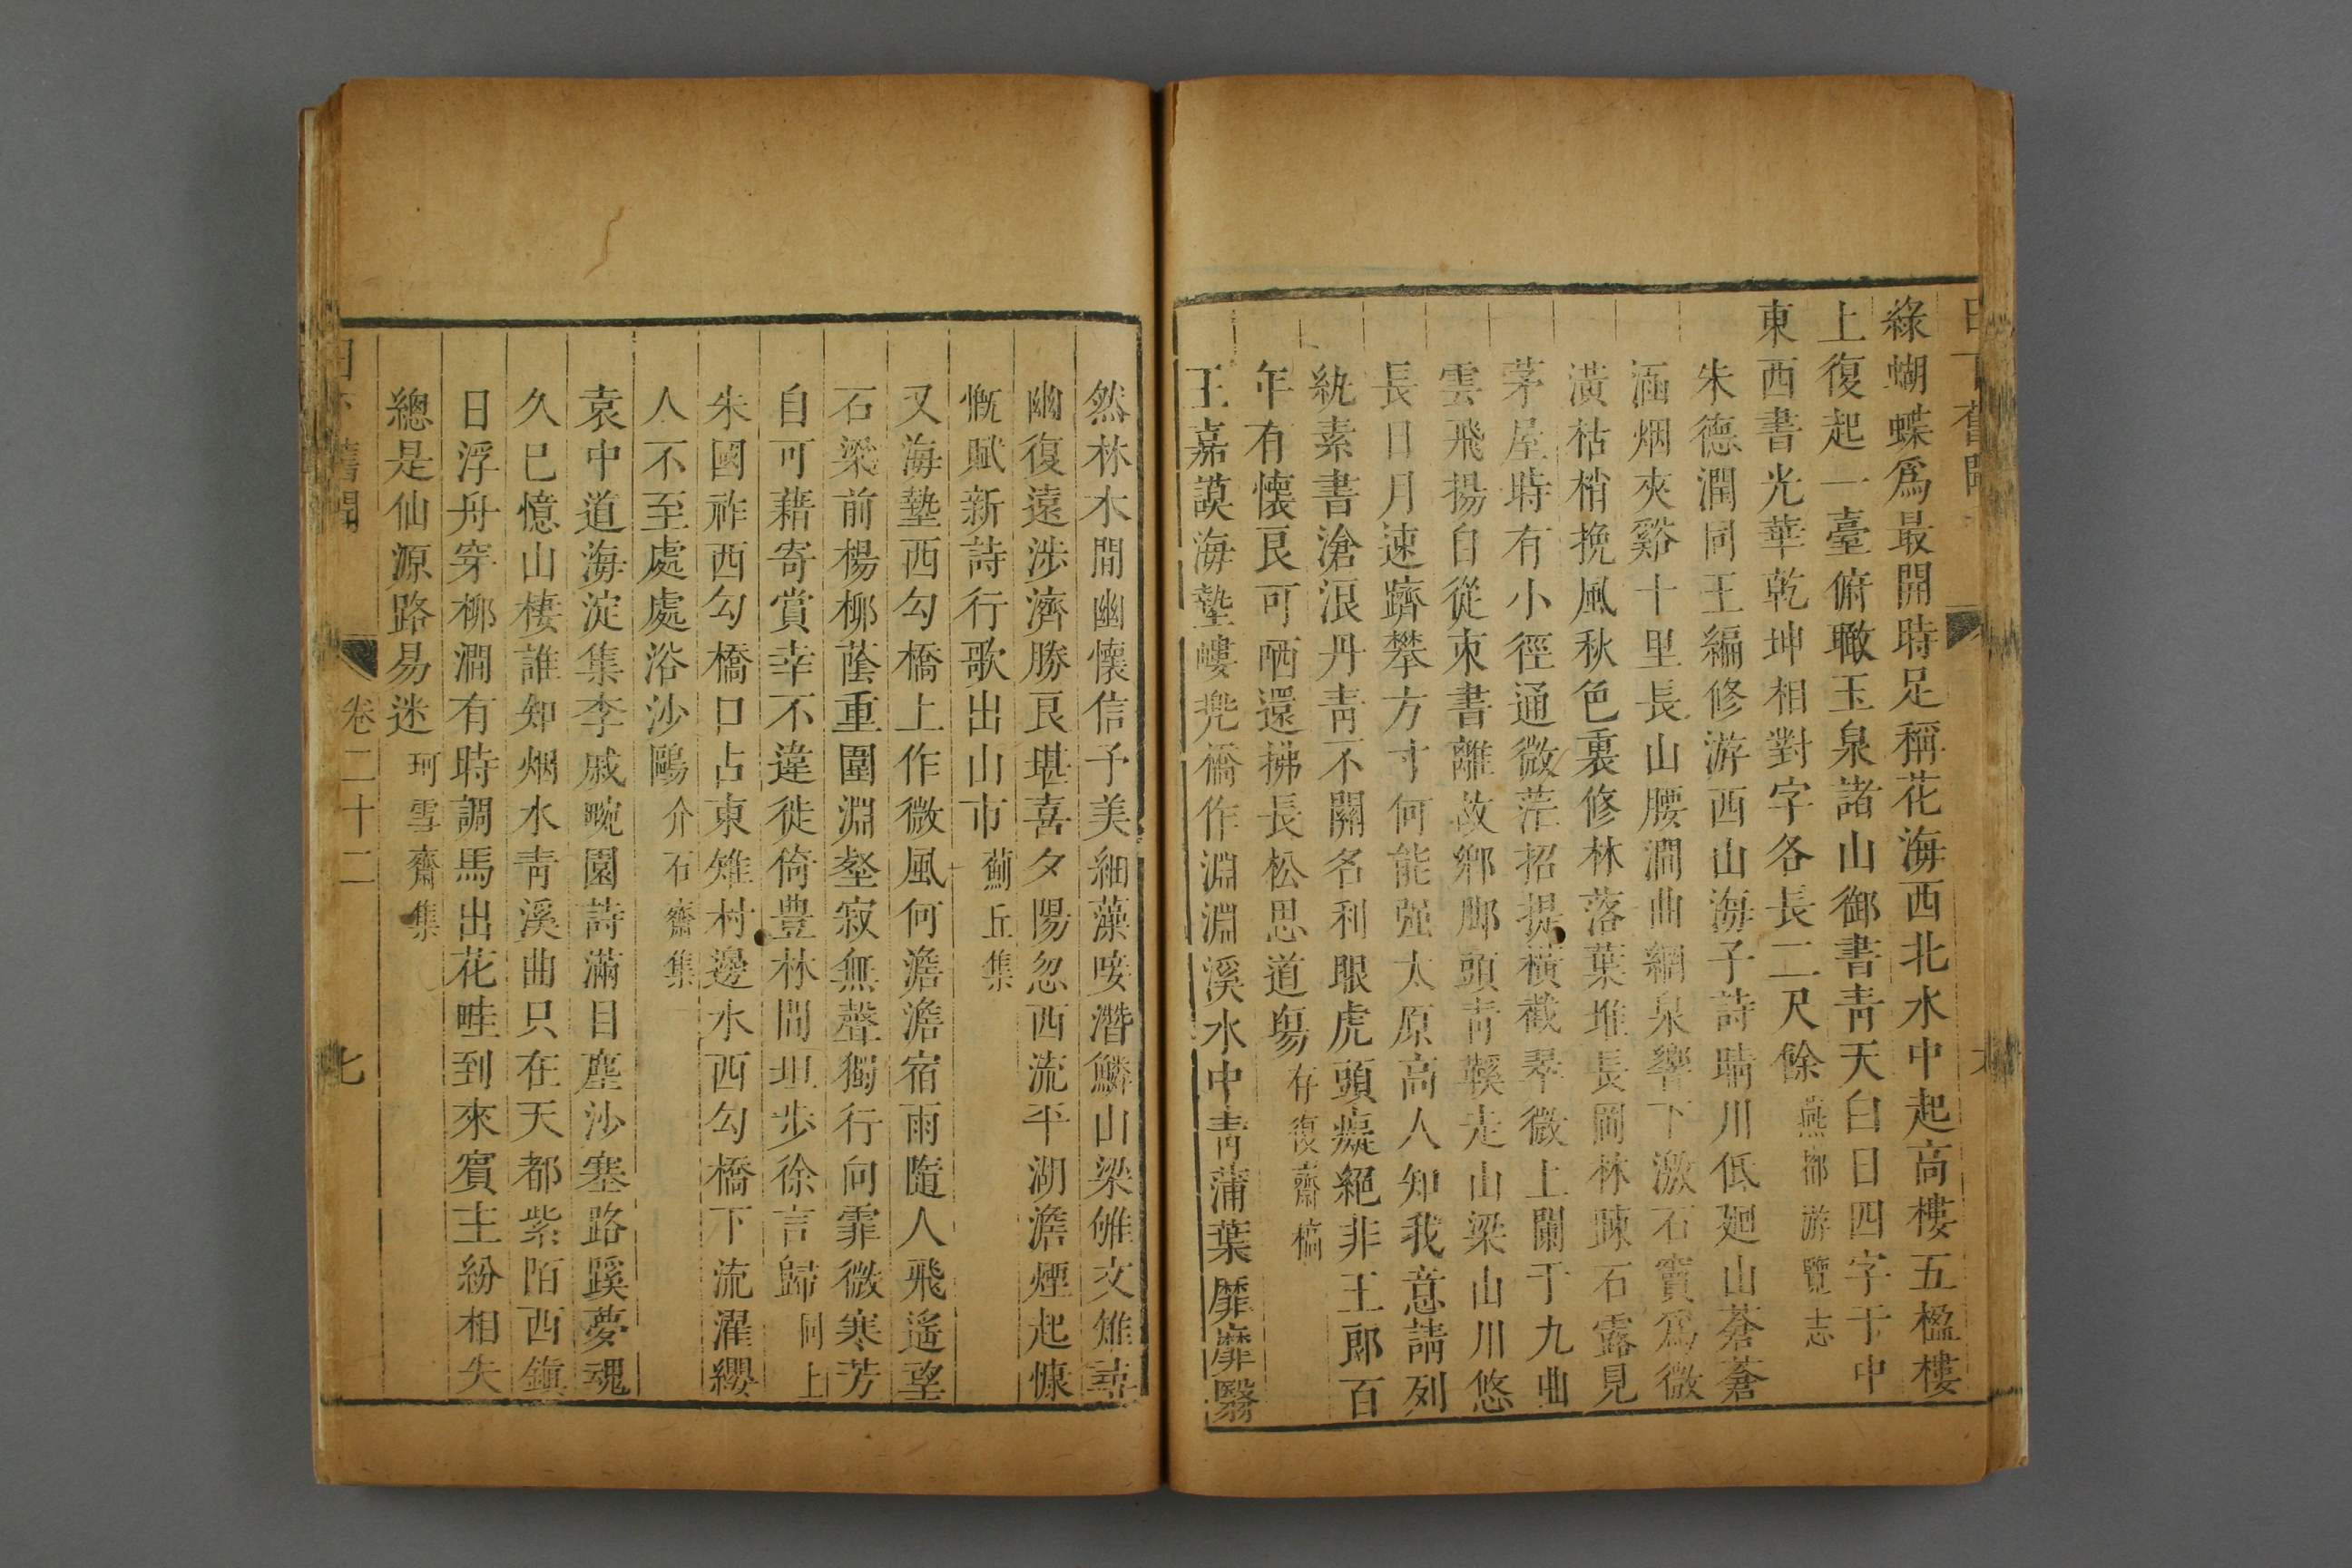 日下舊聞
綠蝴蝶爲最開時足稱花海西北水中起高樓五楹樓
上復起一臺俯瞰玉泉諸山御書青天白日四字于中
東西書光華乾坤相對字各長二尺餘 燕都游覽志
朱德潤同王編修游西山海子詩晴川低廻山蒼蒼
涵烟夾谿十里長山腰澗曲網泉響下激石竇爲微
潢枯梢挽風秋色裏修林落葉堆長岡林疎石露見
茅屋時有小徑通微茫招提橫截翠微上闌干九曲
雲飛揚自從束書離故鄉脚頭青鞵走山梁山川悠
長日月速躋攀方寸何能强太原高人知我意請列
紈素書滄浪丹青不關名利眼虎頭癡絕非王郎百
年有懷艮可哂還拂長松思道場 存復齋稿
王嘉謨海墊嶁兠橋作淵淵溪水中青蒲葉靡靡翳
然林木間幽懷信予美細藻唼潛鱗山梁雊文雉尋
幽復遠涉濟勝艮堪喜夕陽忽西流平湖澹煙起慷
慨賦新詩行歌出山市 薊丘集
又海墊西勾橋上作微風何澹澹宿雨隨人飛遙望
石梁前楊柳蔭重圍淵壑寂無聲獨行向霏微寒芳
自可藉寄賞幸不違徙倚豐林間坦步徐言歸 同上
朱國祚西勾橋口占東雉村邊水西勾橋下流濯纓
人不至處處浴沙鷗 介石齋集
袁中道海淀集李戚畹園詩滿目塵沙塞路蹊夢魂
久已憶山棲誰知烟水青溪曲只在天都紫陌西鎮
日浮舟穿柳澗有時調馬出花畦到來賓主紛相失
總是仙源路易迷 珂雪齋集
日下舊聞 卷二十二 七